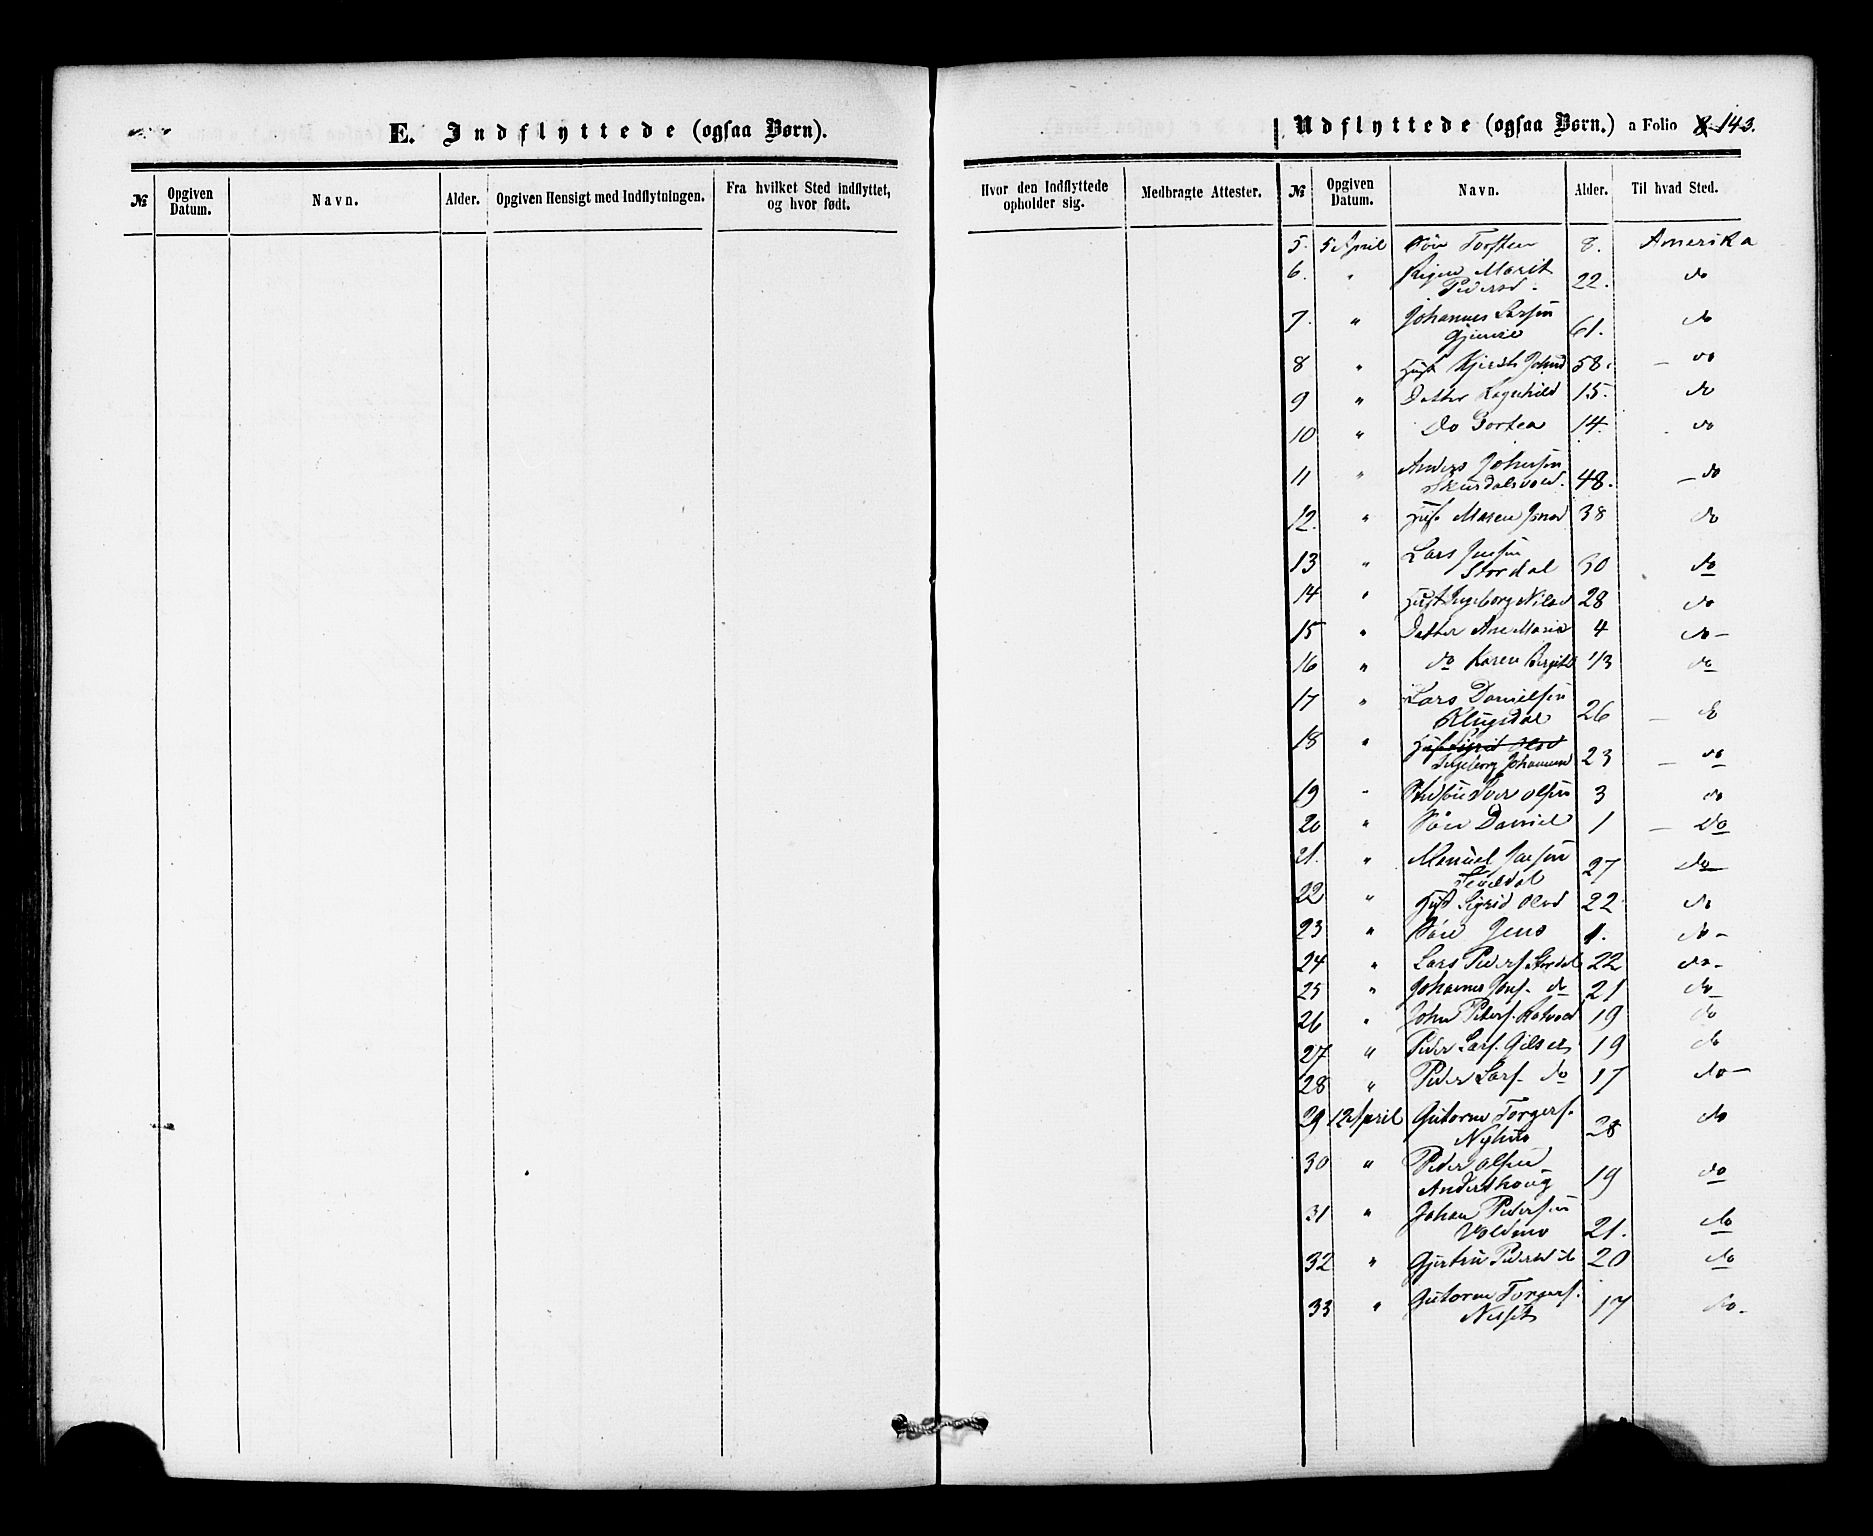 E. Indflyttede (ogsaa Børn).
Udflyttede (ogsaa Børn.) a Folio 143.
№ Opgiven Datum. Navn. Alder. Opgiven Hensigt med Indflytningen. Fra hvilket Sted indflyttet, og hvor født.
Hvor den Indflyttede opholder sig. Medbragte Attester. № Opgiven Datum. Navn. Alder. Til hvad Sted.
5. 5 April Søn Torsten 8. Amerika
6. " Pigen Marit
Pedersd. 22. do
7. " Johannes Larsen
61. do
8 " Hust Kjersti Johnsd 58. do
9 " Datter Ragnhild 15. do
10 " do Gortea 14. do
11 " Anders Johnsen
48. do
12. " Hust. Maren 38 do
13 " Lars Jensen
Stordal 30 do
14 " Hust Ingeborg Nilsd 28 do
15 " Datter Ane Maria 4 do
16 " do Karen Birgitte 1/3 do
17 " Lars Danielsen
Klugsdal 26 do
18 " Hust Sigrid Olsd
Ingeborg Johannesd 23 do
19 " Iver Olsen 3 do
20 " Søn Daniel 1 do
21. " Manuel Jensen
27 do
22 " Hust Sigrid Olsd 22 do
23 " Søn Jens 1. do
24 " Lars Peders. Stordal 22 do
25 " Johannes Jons. do 21 do
26 " John Peders. 19 do
27 " Peder Lars. 19 do
28 " Peder Lars. do 17 do
29 12 April Gutorm Torgers.
28 do
30 " Peder Olsen
Andershoug 19 do
31 " Johan Pedersen
Voldmo 21. do
32 " Gjertru Pedersd do 20 do
33 " Gutorm Torgers.
17 do